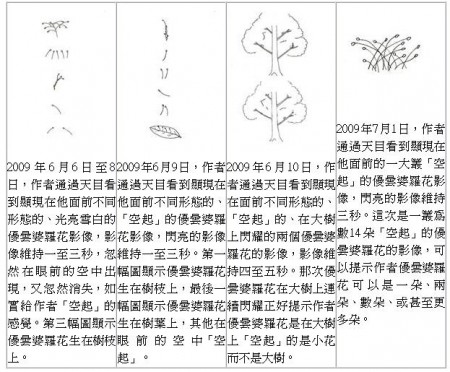 2009年6月6日至8
日，作者通過天目看
到顯現在他面前不同
形態的、光亮雪白的
優曇婆羅花影像，影
像維持一至三秒，忽
然在眼前的空中出
現，又忽然消失，如
實給作者「空起」的
感覺。第三幅圖顯示
優曇婆羅花生在樹枝
上。
2009年6月9日，作者
通過天目看到顯現在
他面前不同形態的、
「空起」的優曇婆羅
花影像，閃亮的影像
維持一至三秒。第一
幅圖顯示優曇婆羅花
生在樹枝上，最後一
幅圖顯示優曇婆羅花
生在樹葉上，其他在
眼前的空中「空
起」。
2009年6月10日，作者
通過天目看到顯現在
在面前不同形態的、
「空起」的、在大樹
上閃耀的兩個優曇婆
羅花影像，影像維
持四至五秒。那次優
曇婆羅花在大樹上連
續閃耀正好提示作者
優曇婆羅花是在大樹
上「空起」的是小花
而不是大樹。
2009年7月1日，作者
通過天目看到顯現在
他面前的一大叢「空
起」的優曇婆羅花影
像，閃亮的影像維持
三秒。這次是一叢為
數14朵「空起」的優
曇婆羅花的影像，可
以提示作者優曇婆羅
花可以是一朵、兩
朵、數朵、或甚至更
多朵。